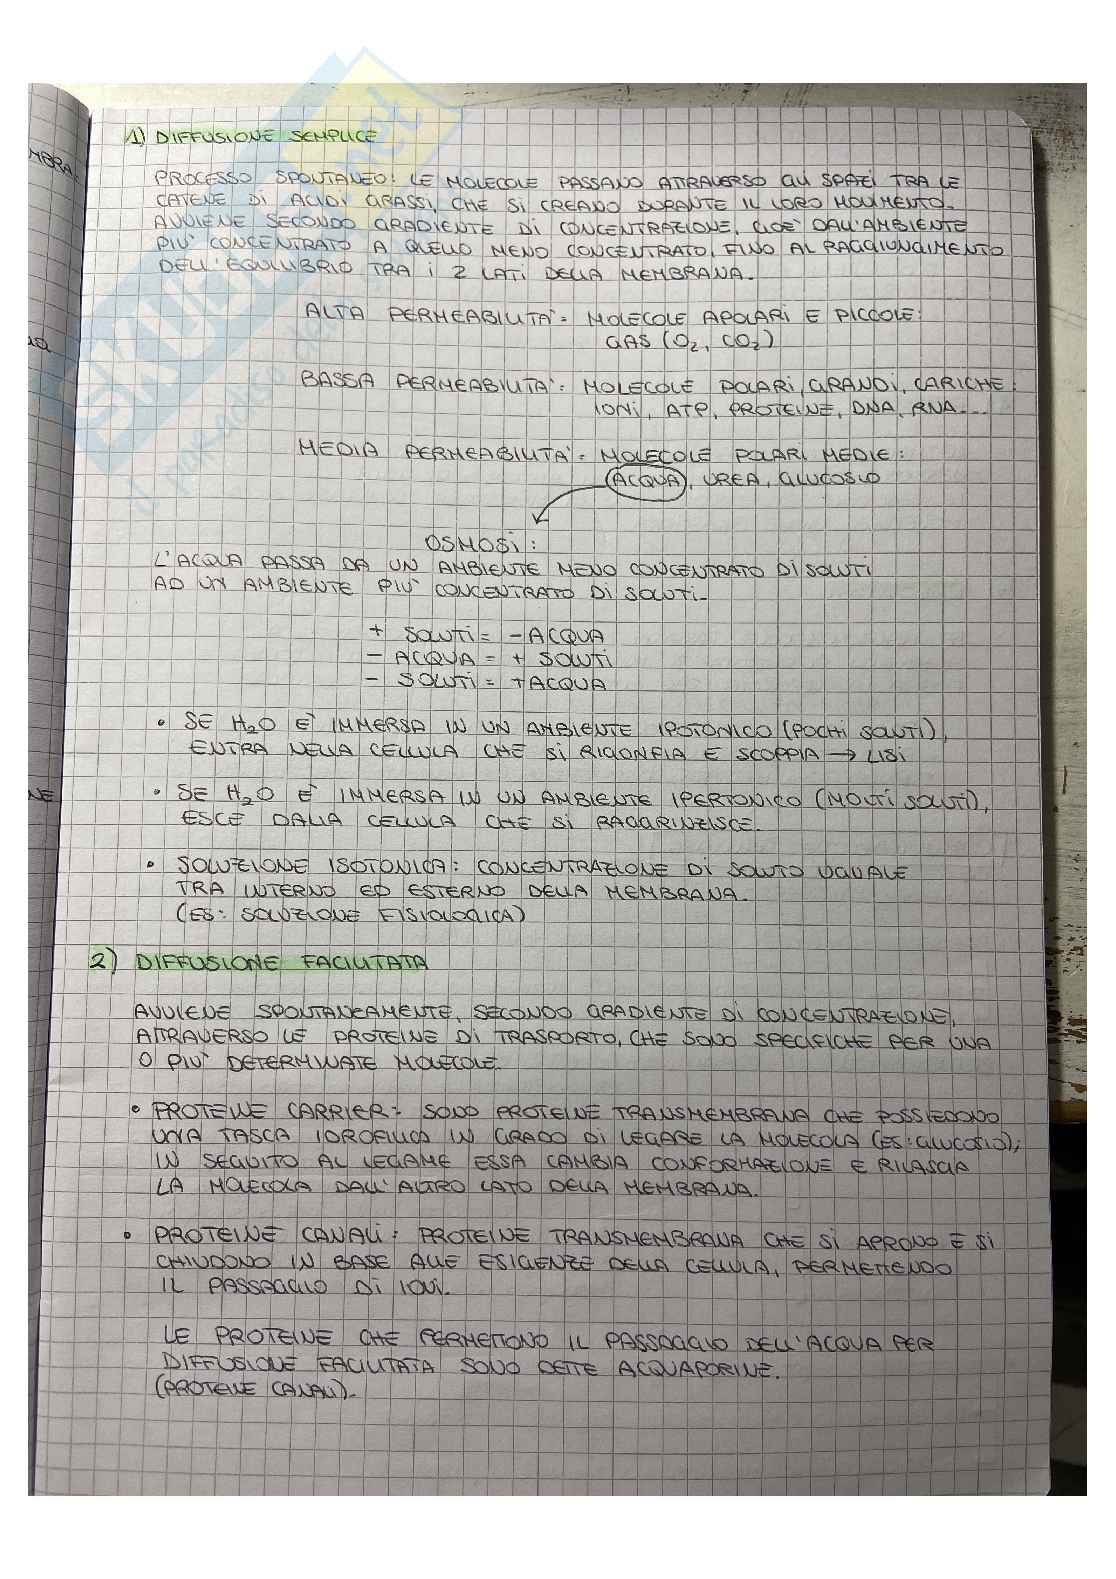 1) DIFFUSIONE SEMPLICE
PROCESSO SPONTANEO: LE MOLECOLE PASSANO ATTRAVERSO GLI SPAZI TRA LE
CATENE DI ACIDI GRASSI, CHE SI CREANO DURANTE IL LORO MOVIMENTO.
AVVIENE SECONDO GRADIENTE DI CONCENTRAZIONE, CIOÈ DALL'AMBIENTE
PIU' CONCENTRATO A QUELLO MENO CONCENTRATO, FINO AL RAGGIUNGIMENTO
DELL'EQUILIBRIO TRA I 2 LATI DELLA MEMBRANA.
ALTA PERMEABILITA' = MOLECOLE APOLARI E PICCOLE:
GAS (O₂, CO₂)
BASSA PERMEABILITA' = MOLECOLE POLARI, GRANDI, CARICHE:
IONI, ATP, PROTEINE, DNA, RNA...
MEDIA PERMEABILITA' = MOLECOLE POLARI MEDIE:
ACQUA, UREA, GLUCOSIO
OSMOSI:
L'ACQUA PASSA DA UN AMBIENTE MENO CONCENTRATO DI SOLUTI
AD UN AMBIENTE PIU' CONCENTRATO DI SOLUTI.
+ SOLUTI = - ACQUA
- ACQUA = + SOLUTI
- SOLUTI = + ACQUA
• SE H₂O E' IMMERSA IN UN AMBIENTE IPOTONICO (POCHI SOLUTI),
ENTRA NELLA CELLULA CHE SI RIGONFIA E SCOPPIA → LISI
• SE H₂O E' IMMERSA IN UN AMBIENTE IPERTONICO (MOLTI SOLUTI),
ESCE DALLA CELLULA CHE SI RAGGRINZISCE.
• SOLUZIONE ISOTONICA: CONCENTRAZIONE DI SOLUTO UGUALE
TRA INTERNO ED ESTERNO DELLA MEMBRANA.
(ES: SOLUZIONE FISIOLOGICA)
2) DIFFUSIONE FACILITATA
AVVIENE SPONTANEAMENTE, SECONDO GRADIENTE DI CONCENTRAZIONE,
ATTRAVERSO LE PROTEINE DI TRASPORTO, CHE SONO SPECIFICHE PER UNA
O PIU' DETERMINATE MOLECOLE.
• PROTEINE CARRIER: SONO PROTEINE TRANSMEMBRANA CHE POSSIEDONO
UNA TASCA IDROFILICA IN GRADO DI LEGARE LA MOLECOLA (ES: GLUCOSIO);
IN SEGUITO AL LEGAME ESSA CAMBIA CONFORMAZIONE E RILASCIA
LA MOLECOLA DALL'ALTRO LATO DELLA MEMBRANA.
• PROTEINE CANALI: PROTEINE TRANSMEMBRANA CHE SI APRONO E SI
CHIUDONO IN BASE ALLE ESIGENZE DELLA CELLULA, PERMETTENDO
IL PASSAGGIO DI IONI.
LE PROTEINE CHE PERMETTONO IL PASSAGGIO DELL'ACQUA PER
DIFFUSIONE FACILITATA SONO DETTE ACQUAPORINE.
(PROTEINE CANALI).